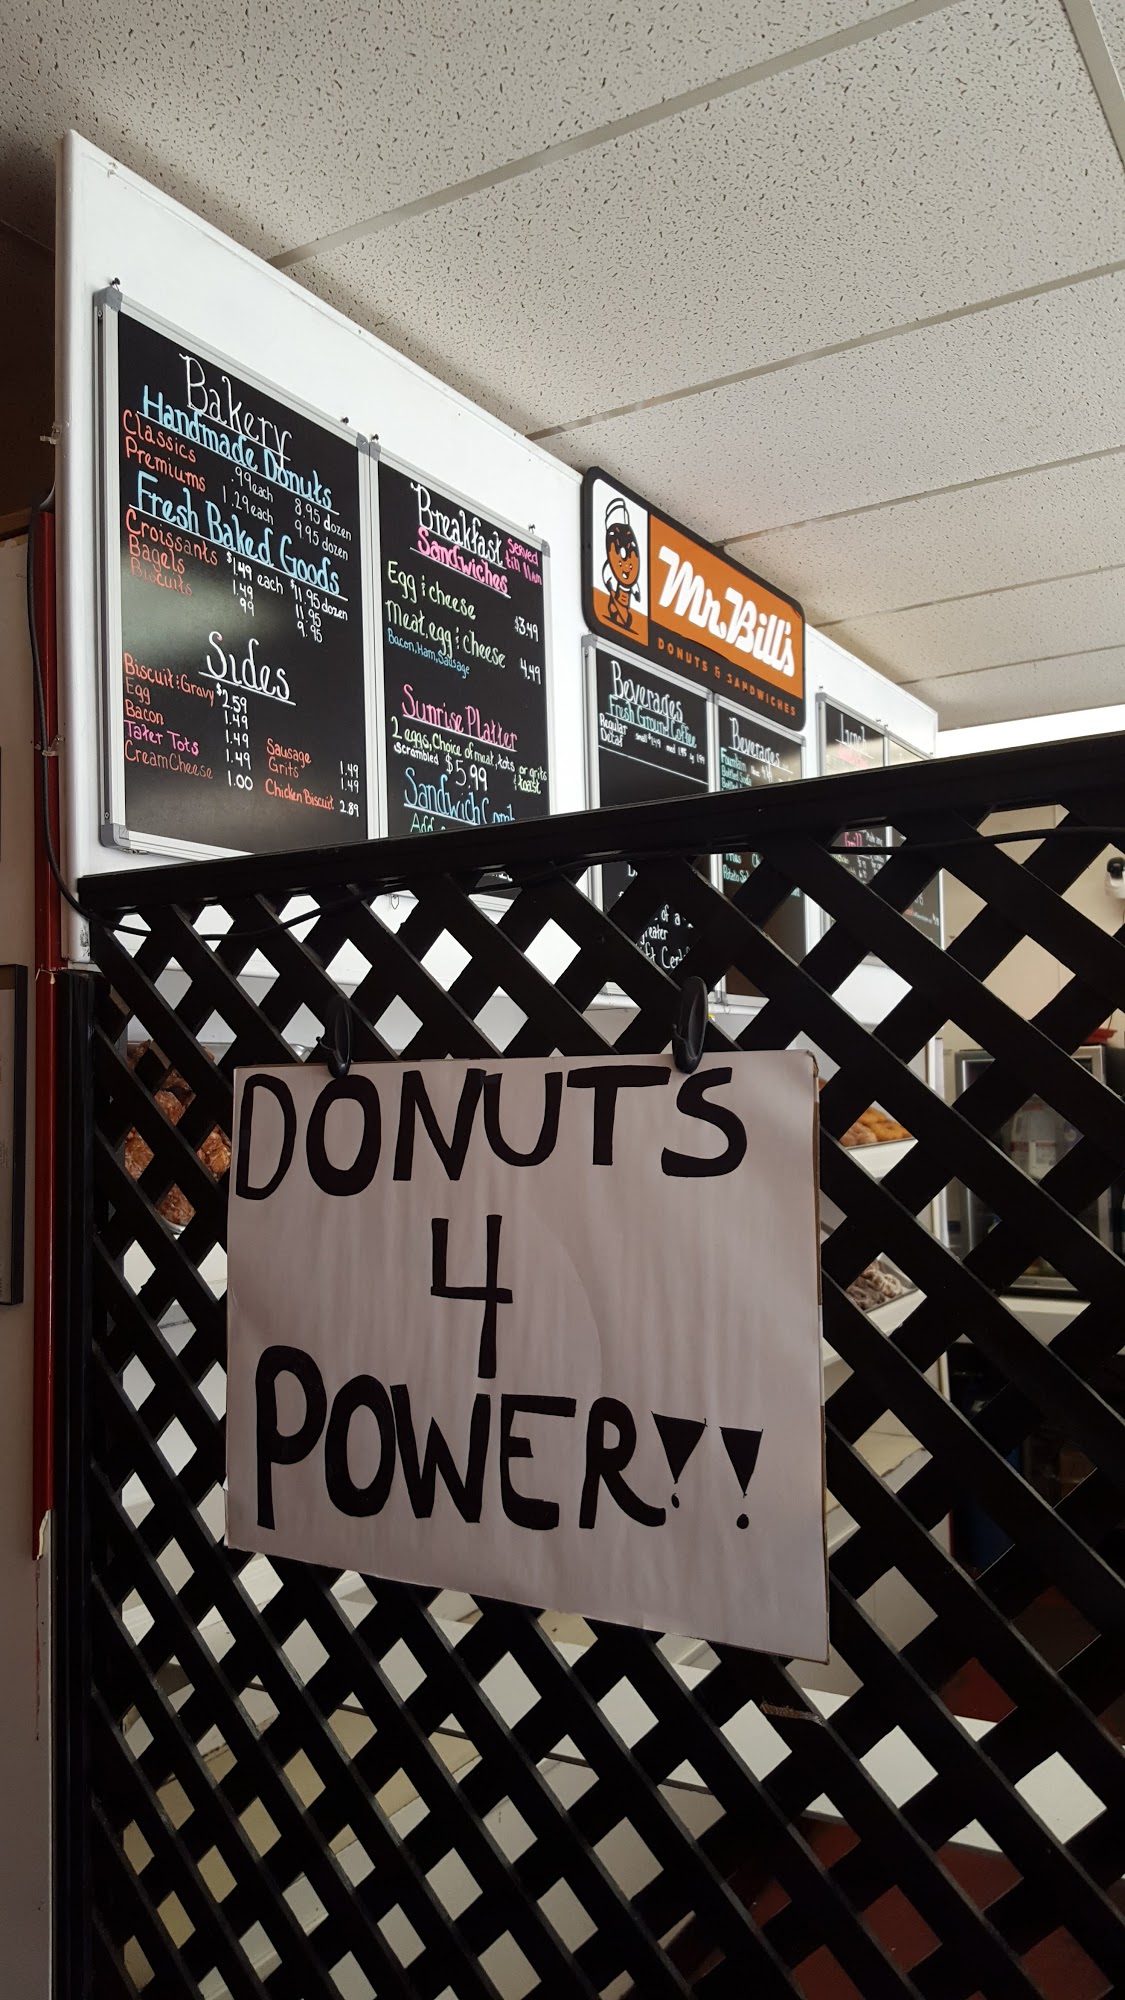 Bakery
Handmade Donuts
Classics .99each 8.95 dozen
Premiums 1.29each 9.95 dozen
Fresh Baked Goods
Croissants $1.49 each $11.95 dozen
Bagels 1.49 11.95
Biscuits .99 9.95
Sides
Biscuit & Gravy $2.59
Egg 1.49
Bacon 1.49
Tater Tots 1.49
Cream Cheese 1.00
Sausage 1.49
Grits 1.49
Chicken Biscuit 2.89
Breakfast
Sandwiches
Served
till 11am
Egg & cheese $3.49
Meat, egg & cheese 4.49
Bacon, Ham, Sausage
Sunrise Platter
2 eggs, Choice of meat, tots or grits
scrambled $5.99 & toast
Sandwich
Add
Mr. Bill's
DONUTS & SANDWICHES
Beverages
Fresh Ground Coffee
Regular small
Decaf
Beverages
Fountain
Bottled
Lunch
of a
DONUTS
4
POWER!!